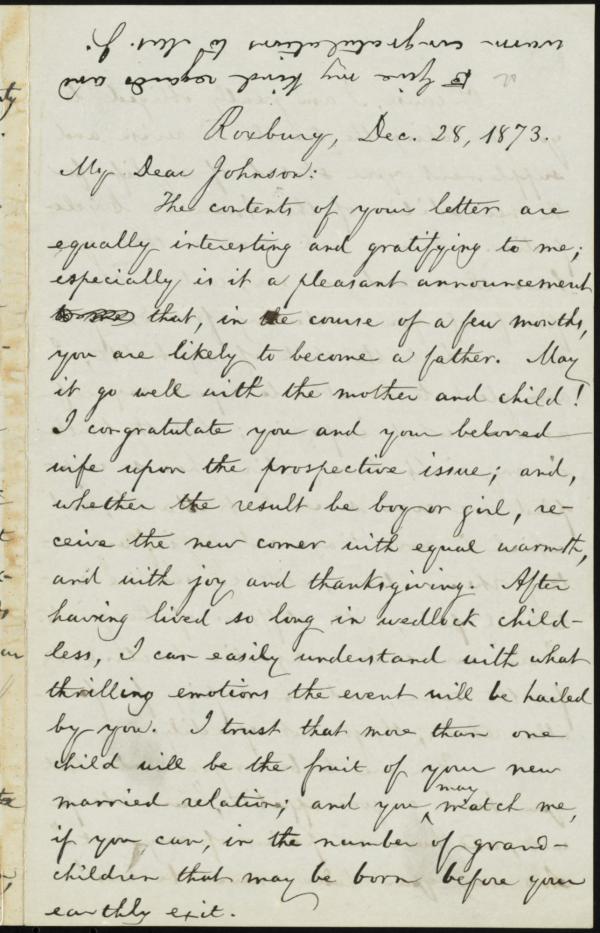 Give my kind regards and
warm congratulations to Mrs. J.
Roxbury, Dec. 28, 1873.
My Dear Johnson:
The contents of your letter are
equally interesting and gratifying to me;
especially is it a pleasant announcement
that, in the course of a few months,
you are likely to become a father. May
it go well with the mother and child!
I congratulate you and your beloved
wife upon the prospective issue; and,
whether the result be boy or girl, re-
ceive the new comer with equal warmth,
and with joy and thanksgiving. After
having lived so long in wedlock child-
less, I can easily understand with what
thrilling emotions the event will be hailed
by you. I trust that more than one
child will be the fruit of your new
married relation; and you may match me,
if you can, in the number of grand-
children that may be born before your
earthly exit.